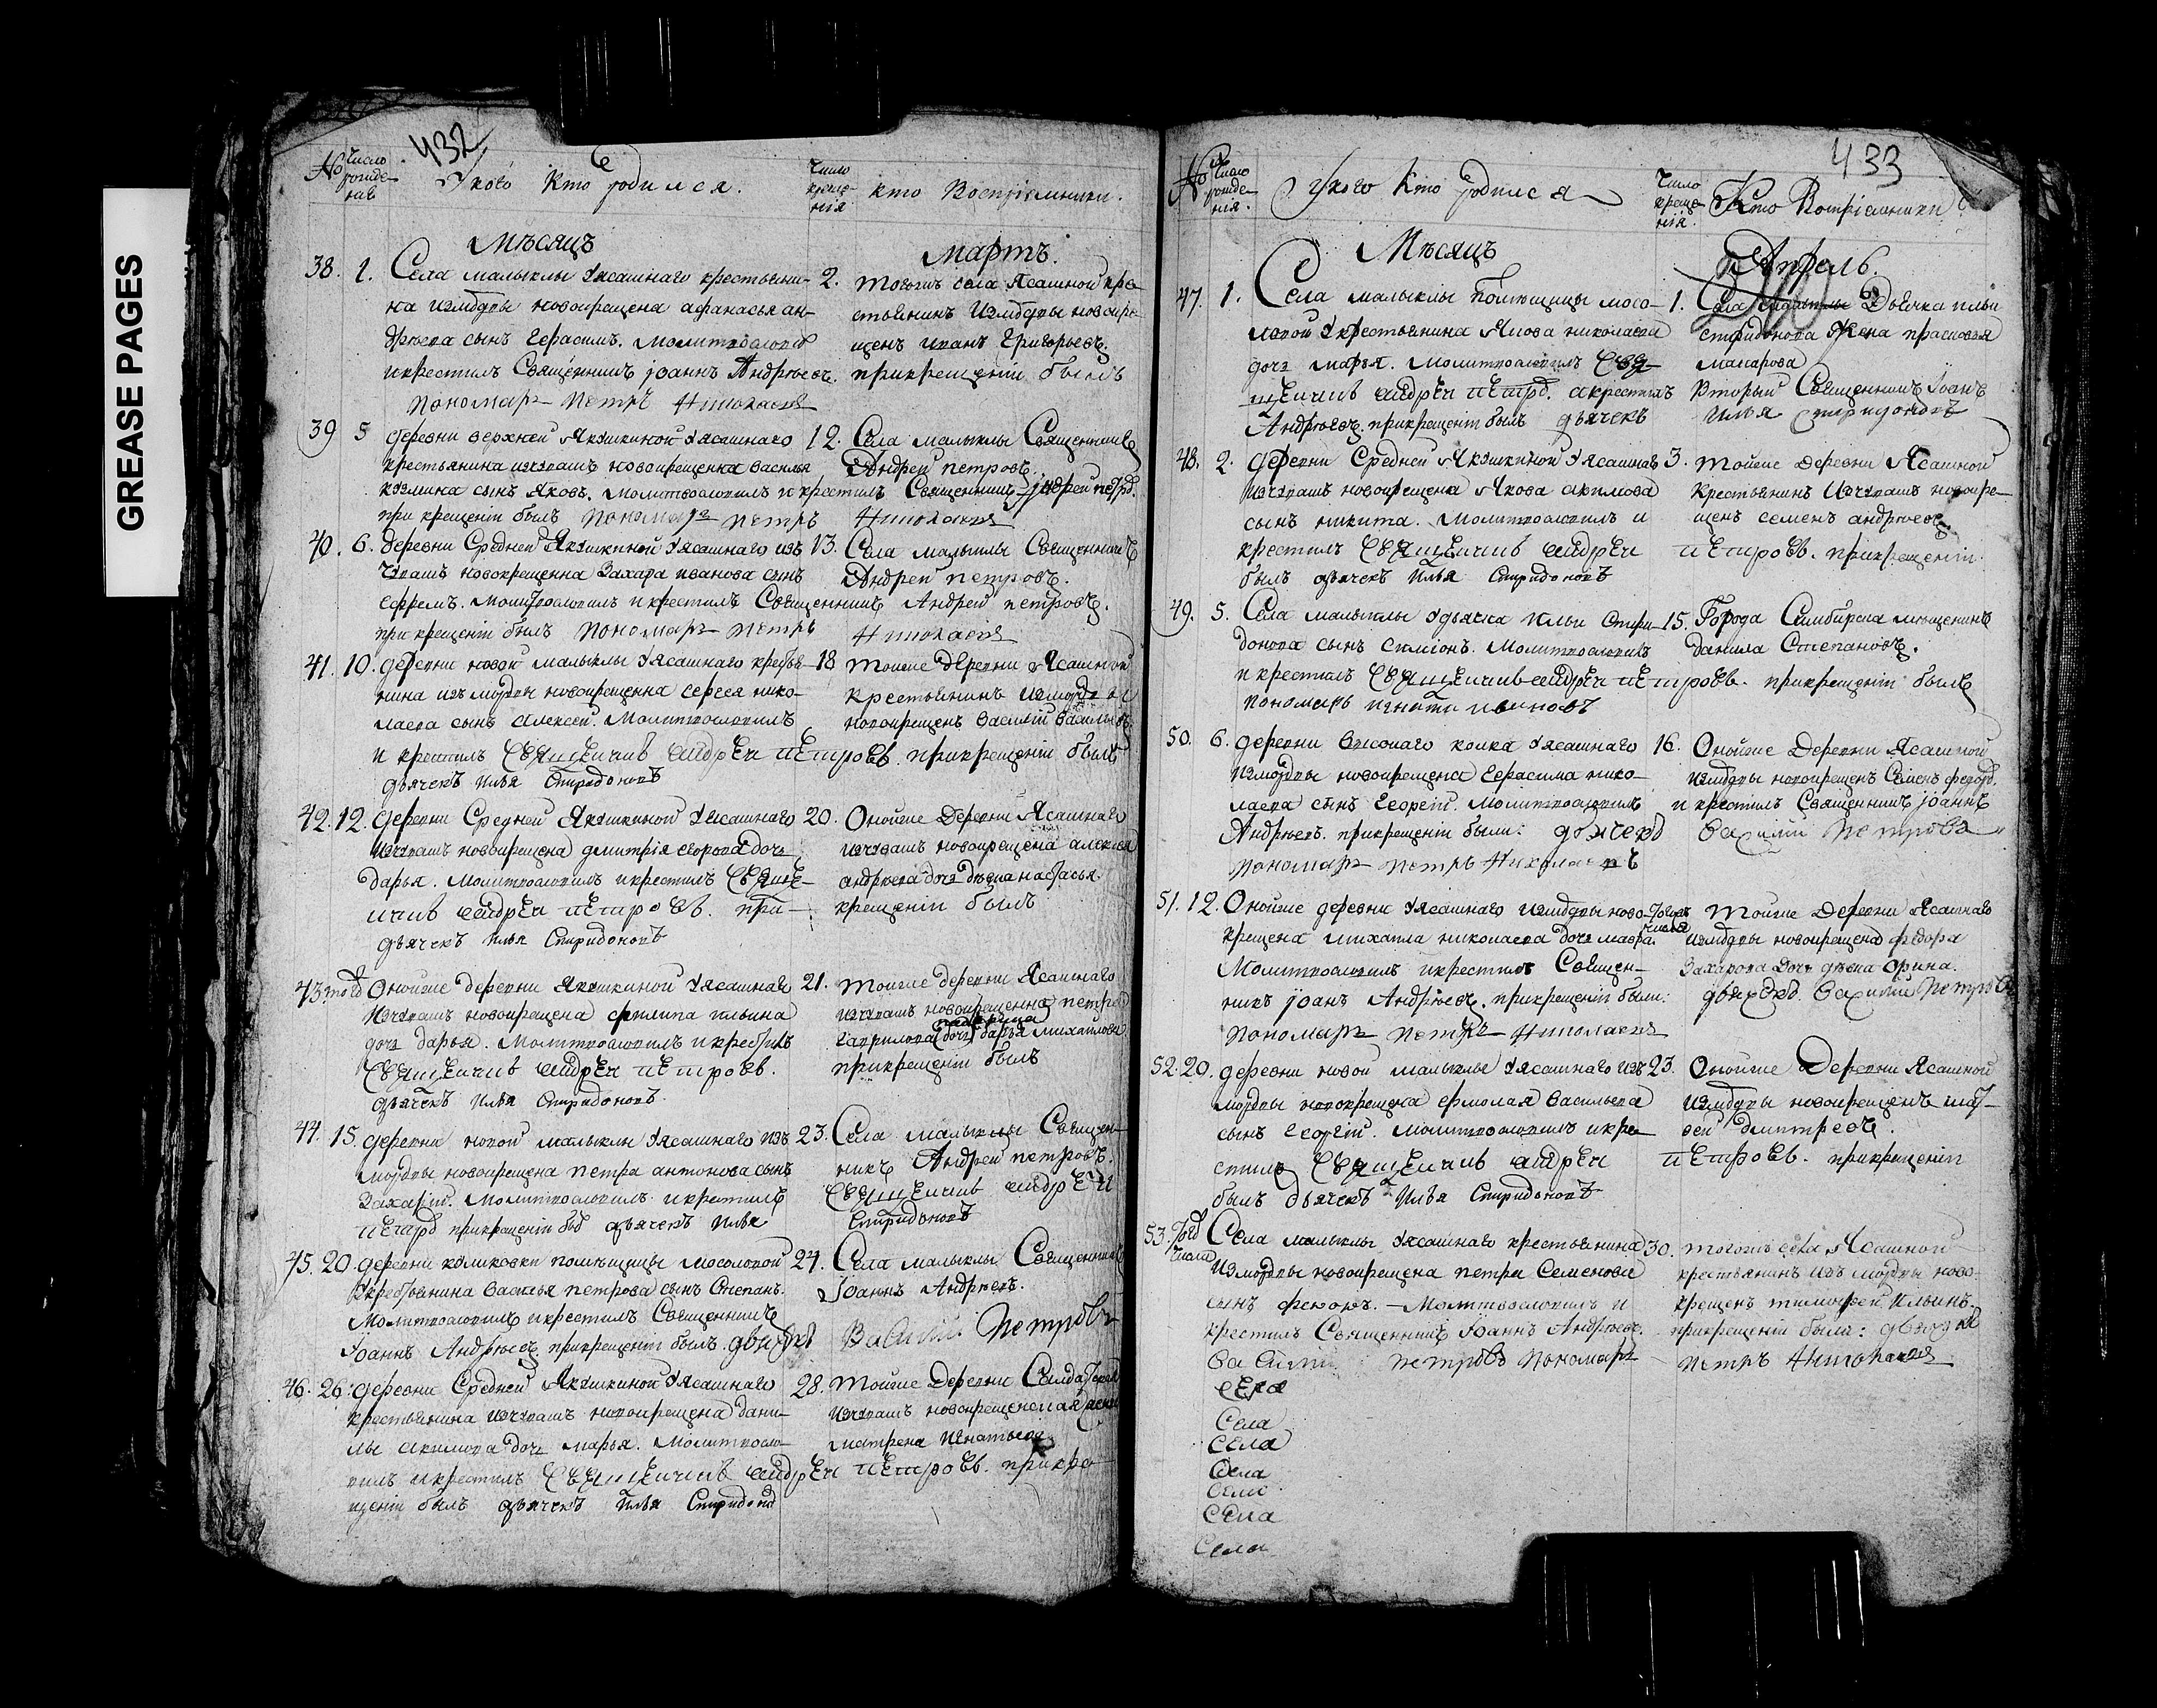 GREASE PAGES
432
№ Число рожде-нив
У кого Кто родился.
Число креще-нія
кто Воспріемники.
Мѣсяцъ
Мартъ.
38. 1. Села малыклы Уясашнаго крестьяни-
на измордвы новокрещена афанасья ан-
дрѣева сынъ Герасимъ. Молитвословил
икрестилъ Священникъ Іоаннъ Андрѣевъ.
пономарь петръ Николаевъ
2. тогожъ села Ясашной кре-
стьянинъ Измордвы новокре-
щенъ иванъ Григорьевъ.
прикрещеніи былъ
39 5 деревни верхней Якушкиной Уясашнаго
крестьянина изчувашъ новокрещенна Василья
козмина сынъ Яковъ. Молитвословилъ и крестилъ Священникъ Андрей петров.
при крещеніи былъ пономарь петръ Николаевъ
12. Села малыклы Священникъ
Андрей петровъ.
40. 6. деревни Средней Якушкиной Уясашнаго изъ
чувашъ новокрещенна Захара иванова сынъ
ефремъ. Молитвословилъ и крестилъ Священникъ Андрей петровъ.
при крещеніи былъ пономарь петръ Николаевъ
13. Села малыклы Священникъ
Андрей петровъ.
41. 10. деревни новой малыклы Уясашнаго крестья-
нина изъ мордвы новокрещенна сергея нико-
лаева сынъ алексей. Молитвословилъ
и крестилъ Священникъ андрей петровъ. прикрещеніи былъ
дьячекъ илья Спиридоновъ
18 тойже деревни Ясашной
крестьянинъ измордвы
новокрещенъ Василій Васильевъ
42. 12. деревни Средней Якушкиной Уясашнаго
изчувашъ новокрещена дмитрія егорова дочь
дарья. Молитвословилъ икрестилъ Священ-
никъ андрей петровъ. при-
дьячекъ илья Спиридоновъ
20. Оной же деревни Ясашнаго
изчувашъ новокрещена алексея
андрѣева дочь дѣвка настасья.
крещеніи былъ
43 того Онойже деревни Якушкиной Уясашнаго
изчувашъ новокрещена филипа ильина
дочь дарья. Молитвословилъ икрестилъ
Священникъ андрей петровъ.
дьячекъ илья Спиридоновъ.
21. тойже деревни Ясашнаго
изчувашъ новокрещенна петра
Гаврилова дочь дарья михайлова
прикрещеніи былъ
44. 15. деревни новой малыклы Уясашнаго изъ
мордвы новокрещена петра антонова сынъ
Захарій. Молитвословилъ икрестилъ
петровъ прикрещеніи был дьячекъ илья
23. Села малыклы Священ-
никъ Андрей петровъ.
Священникъ андрей
Спиридоновъ
45. 20. деревни помѣщицы Мосоловой
Укрестьянина Василья петрова сынъ Степанъ.
Молитвословилъ икрестилъ Священникъ
Іоаннъ Андрѣевъ. прикрещеніи былъ дьячекъ Василий Петровъ
24. Села малыклы Священникъ
Іоаннъ Андрѣевъ.
46. 26. деревни Средней Якушкиной Уясашнаго
крестьянина изчувашъ новокрещена дани-
лы акимова дочь марья. Молитвосло-
вилъ икрестилъ Священникъ андрей петровъ. прикре-
щеніи былъ дьячекъ илья Спиридонов
28. тойже деревни
изчувашъ новокрещеная
матрена игнатьева
433
№ Число рожде-нія.
У кого Кто родился
Число креще-нія.
Кто Воспріемники
Мѣсяцъ
Апрель.
47. 1. Села малыклы помѣщицы мосо-
ловой Укрестьянина Якова николаева
дочь марья. Молитвословилъ Свя-
щенникъ андрей петров. акрестилъ
Андрѣевъ. прикрещеніи былъ дьячекъ
1. Села малыклы Дьячка ильи
спиридонова Жена прасковья
макарова
Вторый Священникъ Іоанъ
илья спиридоновъ
48. 2. деревни Средней Якушкиной Уясашнаго
изчувашъ новокрещена Якова акимова
сынъ никита. Молитвословилъ и
крестилъ Священникъ андрей петровъ. прикрещеніи
былъ дьячекъ илья Спиридоновъ
3. тойже деревни Ясашной
крестьянинъ изчувашъ новокре-
щенъ семенъ андрѣевъ
49. 5. Села малыклы Удьячка ильи Спири-
донова сынъ симіонъ. Молитвословилъ
и крестилъ Священникъ андрей петровъ. прикрещеніи былъ
пономарь игнати ивановъ
15. Города Симбирска мѣщенинъ
данила Степановъ.
50. 6. деревни Высокаго колка Уясашнаго
измордвы новокрещена Герасима нико-
лаева сынъ Георгій. Молитвословилъ
Андрѣевъ. прикрещеніи были: дьячекъ Василий Петровъ
пономарь петръ Николаевъ
16. Онойже Деревни Ясашной
измордвы новокрещенъ Семенъ федоров.
и крестилъ Священникъ Іоаннъ
51. 12. Онойже деревни Уясашнаго измордвы ново-
крещена михаила николаева дочь мавра.
Молитвословилъ икрестилъ Священ-
никъ Іоанъ Андрѣевъ. прикрещеніи были:
пономарь петръ Николаевъ
Тогожъ числа тойже Деревни Ясашнаго
измордвы новокрещена федора
Захарова дочь дѣвка орина.
дьячекъ Василий Петровъ
52. 20. деревни новой малыклы Уясашнаго изъ
мордвы новокрещена ермолая Васильева
сынъ Георгій. Молитвословилъ икре-
стилъ Священникъ андрей петровъ. прикрещеніи
былъ дьячекъ илья Спиридоновъ
23. Онойже Деревни Ясашной
измордвы новокрещенъ мат-
фей дмитревъ.
53. Того числа Села малыклы Уясашнаго крестьянина
измордвы новокрещена петра Семенова
сынъ . — Молитвословилъ и
крестилъ Священникъ Іоаннъ Андрѣевъ.
Василий петровъ пономарь петръ Николаевъ
30. тогожъ села Ясашной
крестьянинъ изъ мордвы ново-
крещенъ тимофей Ильинъ.
прикрещеніи были: дьячекъ
Села
Села
Села
Села
Села
Села
Села